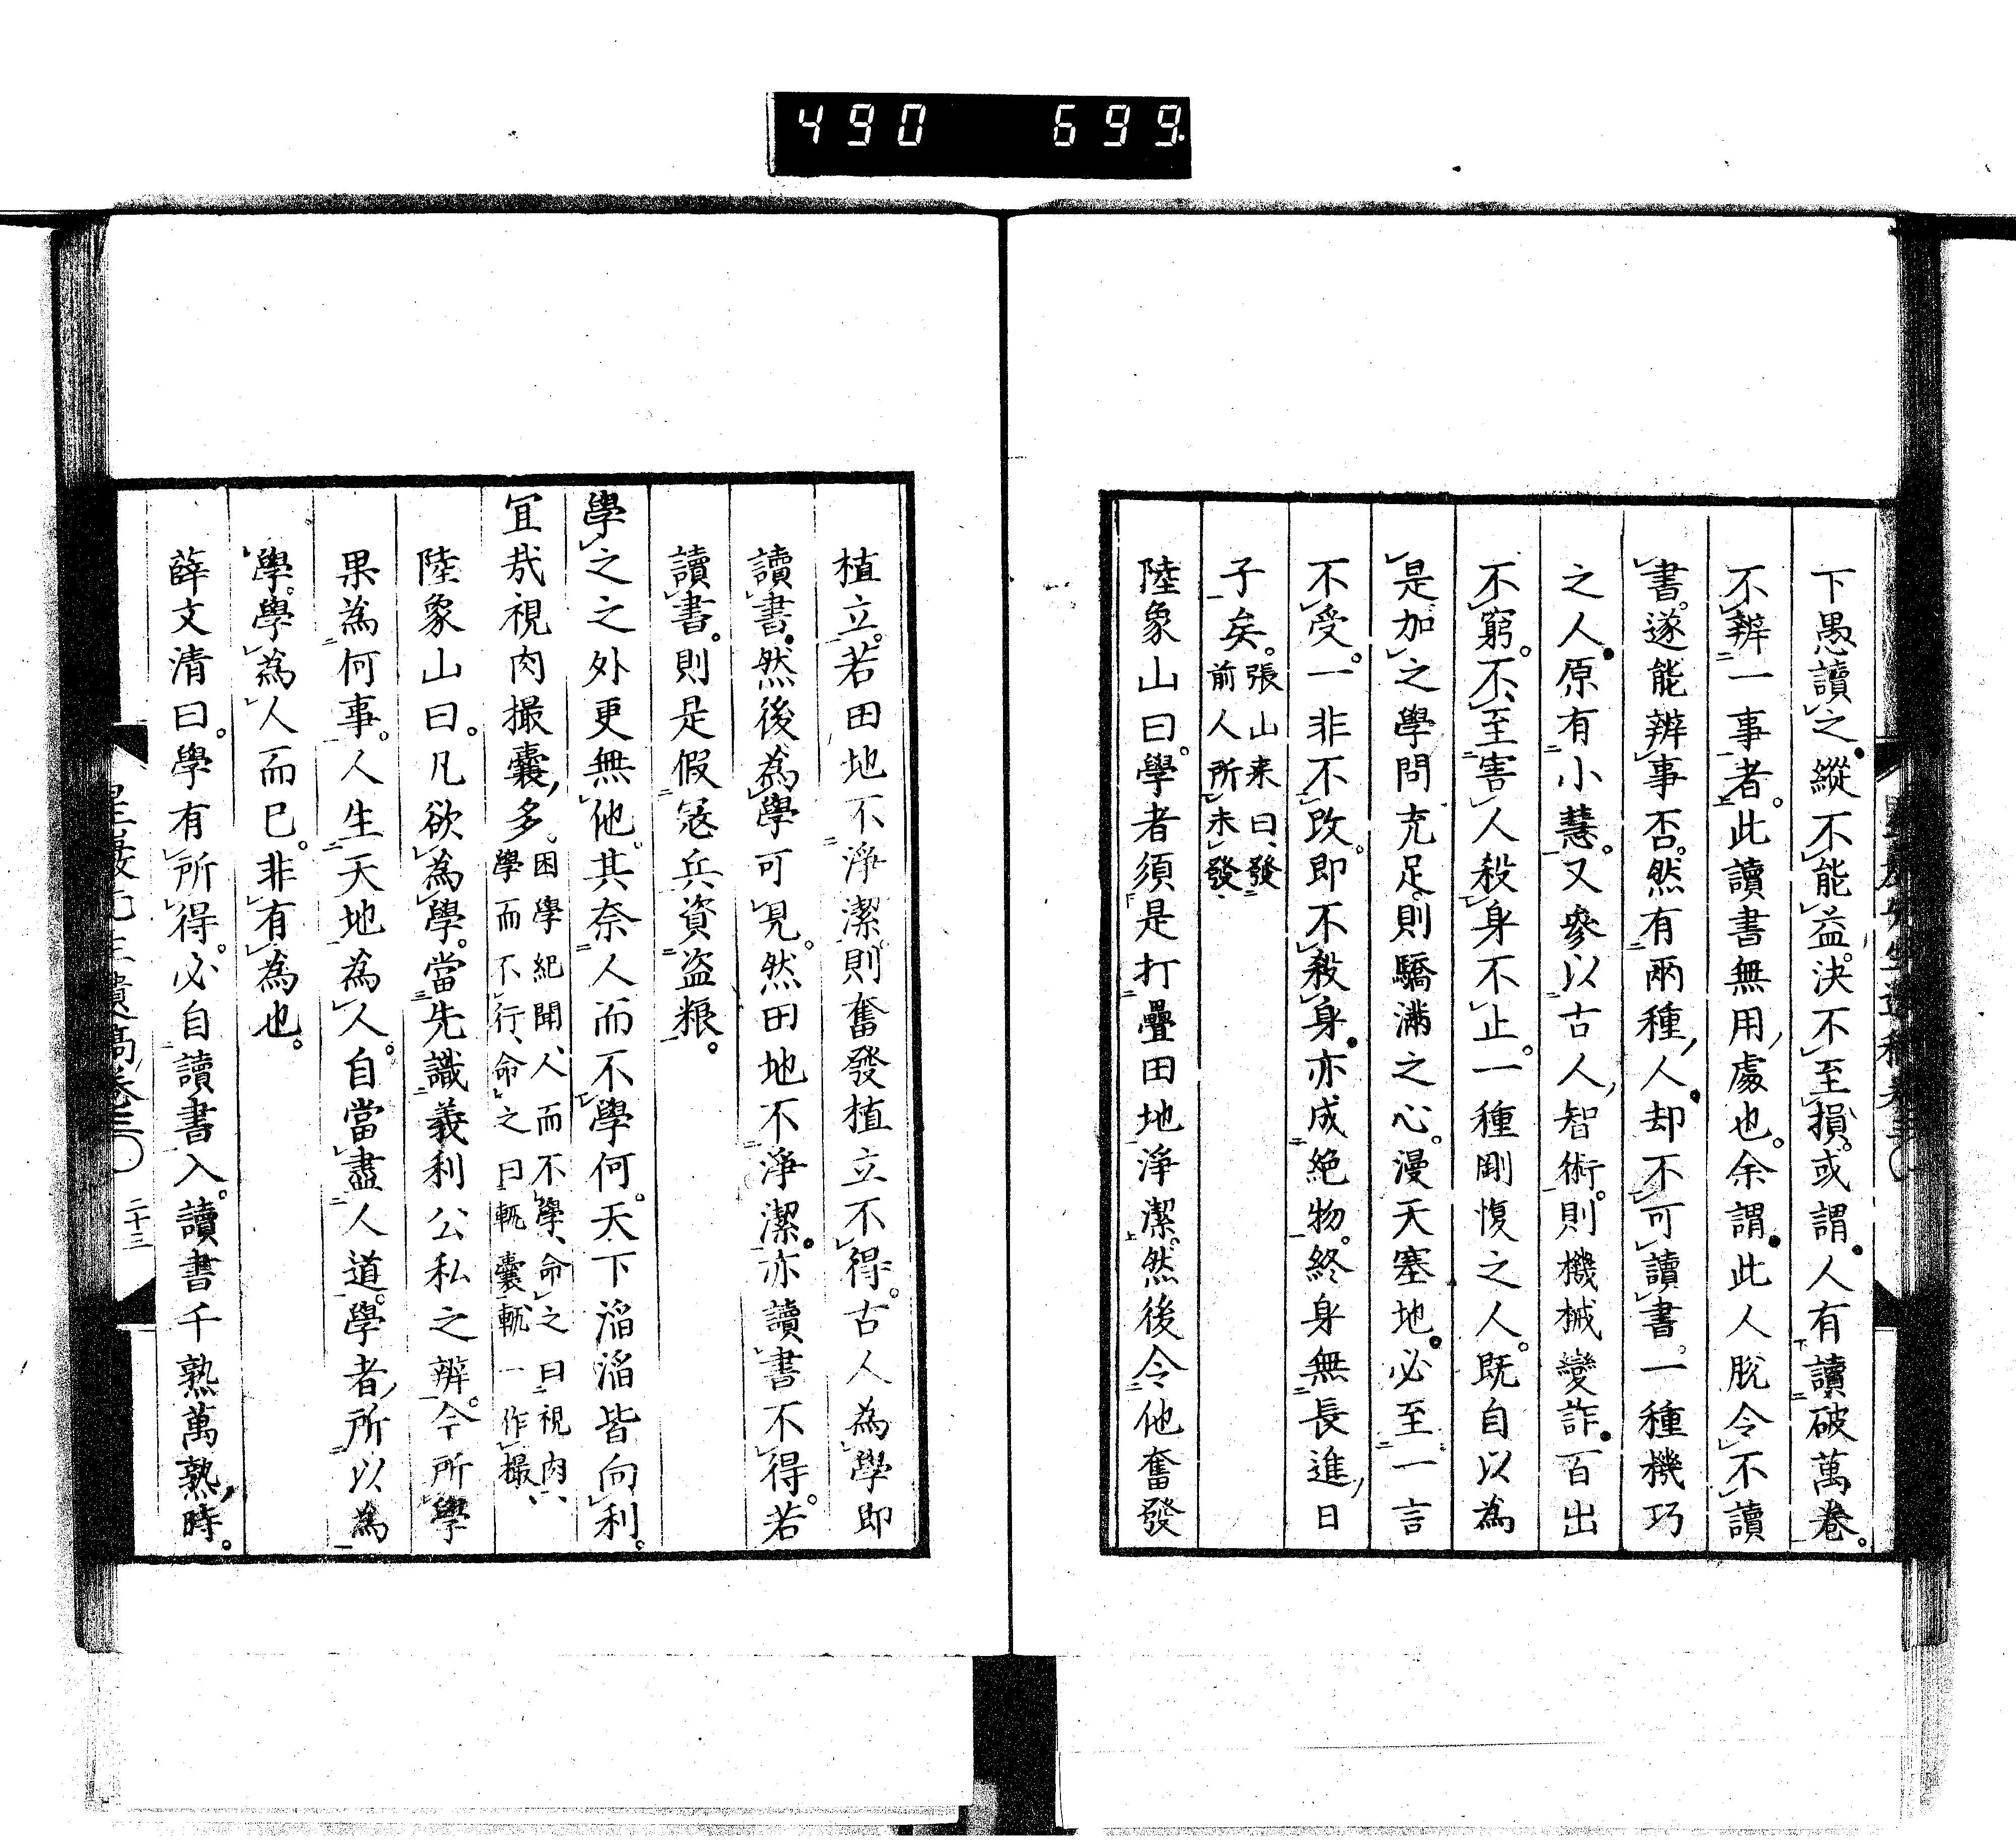 490 699
下愚讀之縱不能益。決不至損。或謂人有讀破萬卷。
不辨一事者。此讀書無用處也。余謂此人脫令不讀
書。遂能辨事否。然有兩種人却不可讀書。一種機巧
之人原有小慧。又參以古人智術。則機械變詐百出
不窮。不至害人殺身不止。一種剛愎之人。既自以為
是加之學問充足。則驕滿之心。漫天塞地必至一言
不受。一非不改。即不殺身亦成絶物。終身無長進日
子矣。張山来曰、發前人所未發、
陸象山曰。學者須是打疊田地淨潔。然後令他奮發
植立。若田地不淨潔。則奮發植立不得。古人為學即
讀書。然後為學可見。然田地不淨潔。亦讀書不得。若
讀書。則是假寇兵資盜粮。
學之之外更無他。其奈人而不學何。天下滔滔皆向利。
宜哉視肉撮囊多。困學紀聞、人而不學、命之曰視肉、學而不行、命之曰輒囊、輒一作撮、
陸象山曰。凡欲為學。當先識義利公私之辨。今所學
果為何事。人生天地為人。自當盡人道。學者所以為
學。學為人而已。非有為也。
薛文清曰。學有所得。必自讀書入。讀書千熟萬熟時。
二十三